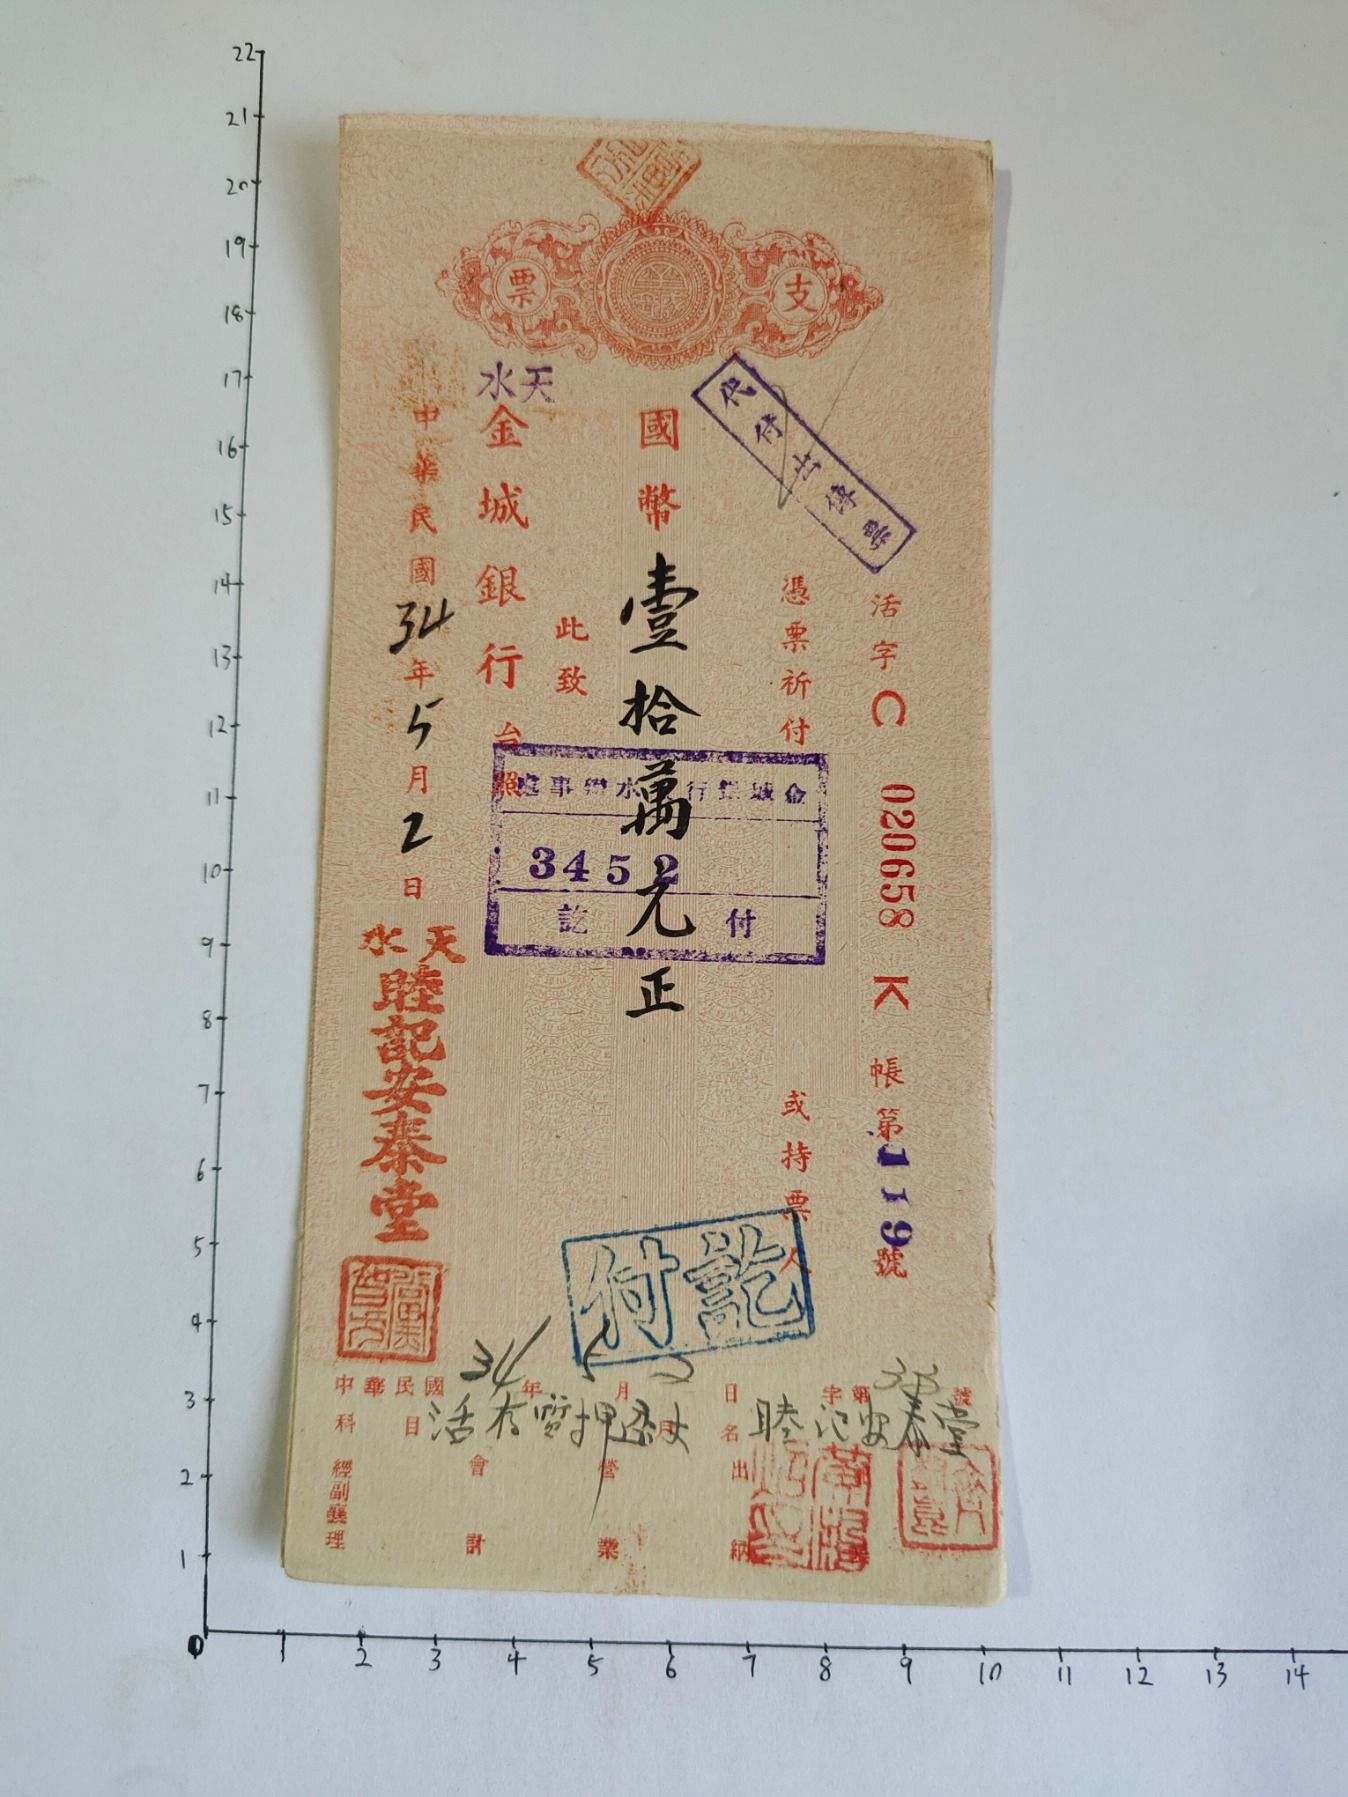 支票
活字C 020658 K 帳第119號
代付出傳票
憑票祈付
或持票人
國幣壹拾萬元正
此致
天水
金城銀行台照
金城銀行 水辦事處
3452
付訖
付訖
中華民國34年5月2日
天水
睦記安泰堂
中華民國34年5月2日
字第號
科目 活存質押透支
戶名 睦記安泰堂
經副襄理
會計
營業
出納
0
1
2
3
4
5
6
7
8
9
10
11
12
13
14
15
16
17
18
19
20
21
22
1
2
3
4
5
6
7
8
9
10
11
12
13
14